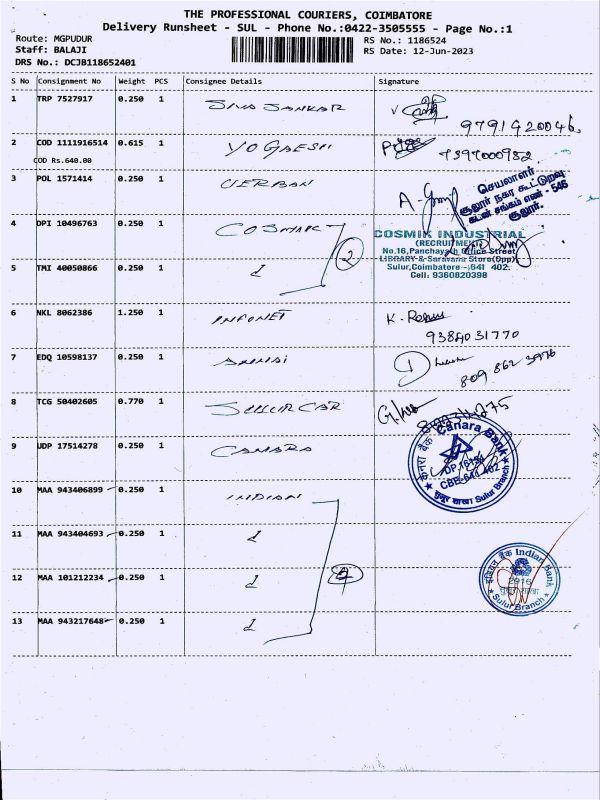 THE PROFESSIONAL COURIERS, COIMBATORE
Delivery Runsheet - SUL - Phone No.:0422-3505555 - Page No.:1
Route: MGPUDUR
Staff: BALAJI
DRS No.: DCJB118652401
RS No.: 1186524
RS Date: 12-Jun-2023
S No Consignment No Weight PCS Consignee Details Signature
1 TRP 7527917 0.250 1 SIVA SANKAR
9791920046
2 COD 1111916514 0.615 1 YOGAESH
COD Rs.640.00
7397000982
3 POL 1571414 0.250 1 UERBAN
செயலாளர்
சூலூர் நகர கூட்டுறவு
கடன் சங்கம் எண் - 546
சூலூர்.
4 DPI 10496763 0.250 1 COSMIK 2
COSMIK INDUSTRIAL
(RECRUITMENT)
No,16,Panchayath Office Street
LIBRARY & Saravana Store(Opp)
Sulur,Coimbatore -641 402.
Cell: 9360820398
5 TMI 40050866 0.250 1
6 NKL 8062386 1.250 1 INFONET K.
9384031770
7 EDQ 10598137 0.250 1 ANNAI
809 862 3976
8 TCG 50402605 0.770 1 SULUR CAR
9 UDP 17514278 0.250 1 CANARA
केनरा बैंक Canara Bank
CBE-641 402
सुलूर शाखा Sulur Branch
10 MAA 943406899 0.250 1 INDIAN
11 MAA 943404693 0.250 1
12 MAA 101212234 0.250 1
इंडियन बैंक Indian Bank
2916
सुलूर शाखा
Sulur Branch
13 MAA 943217648 0.250 1